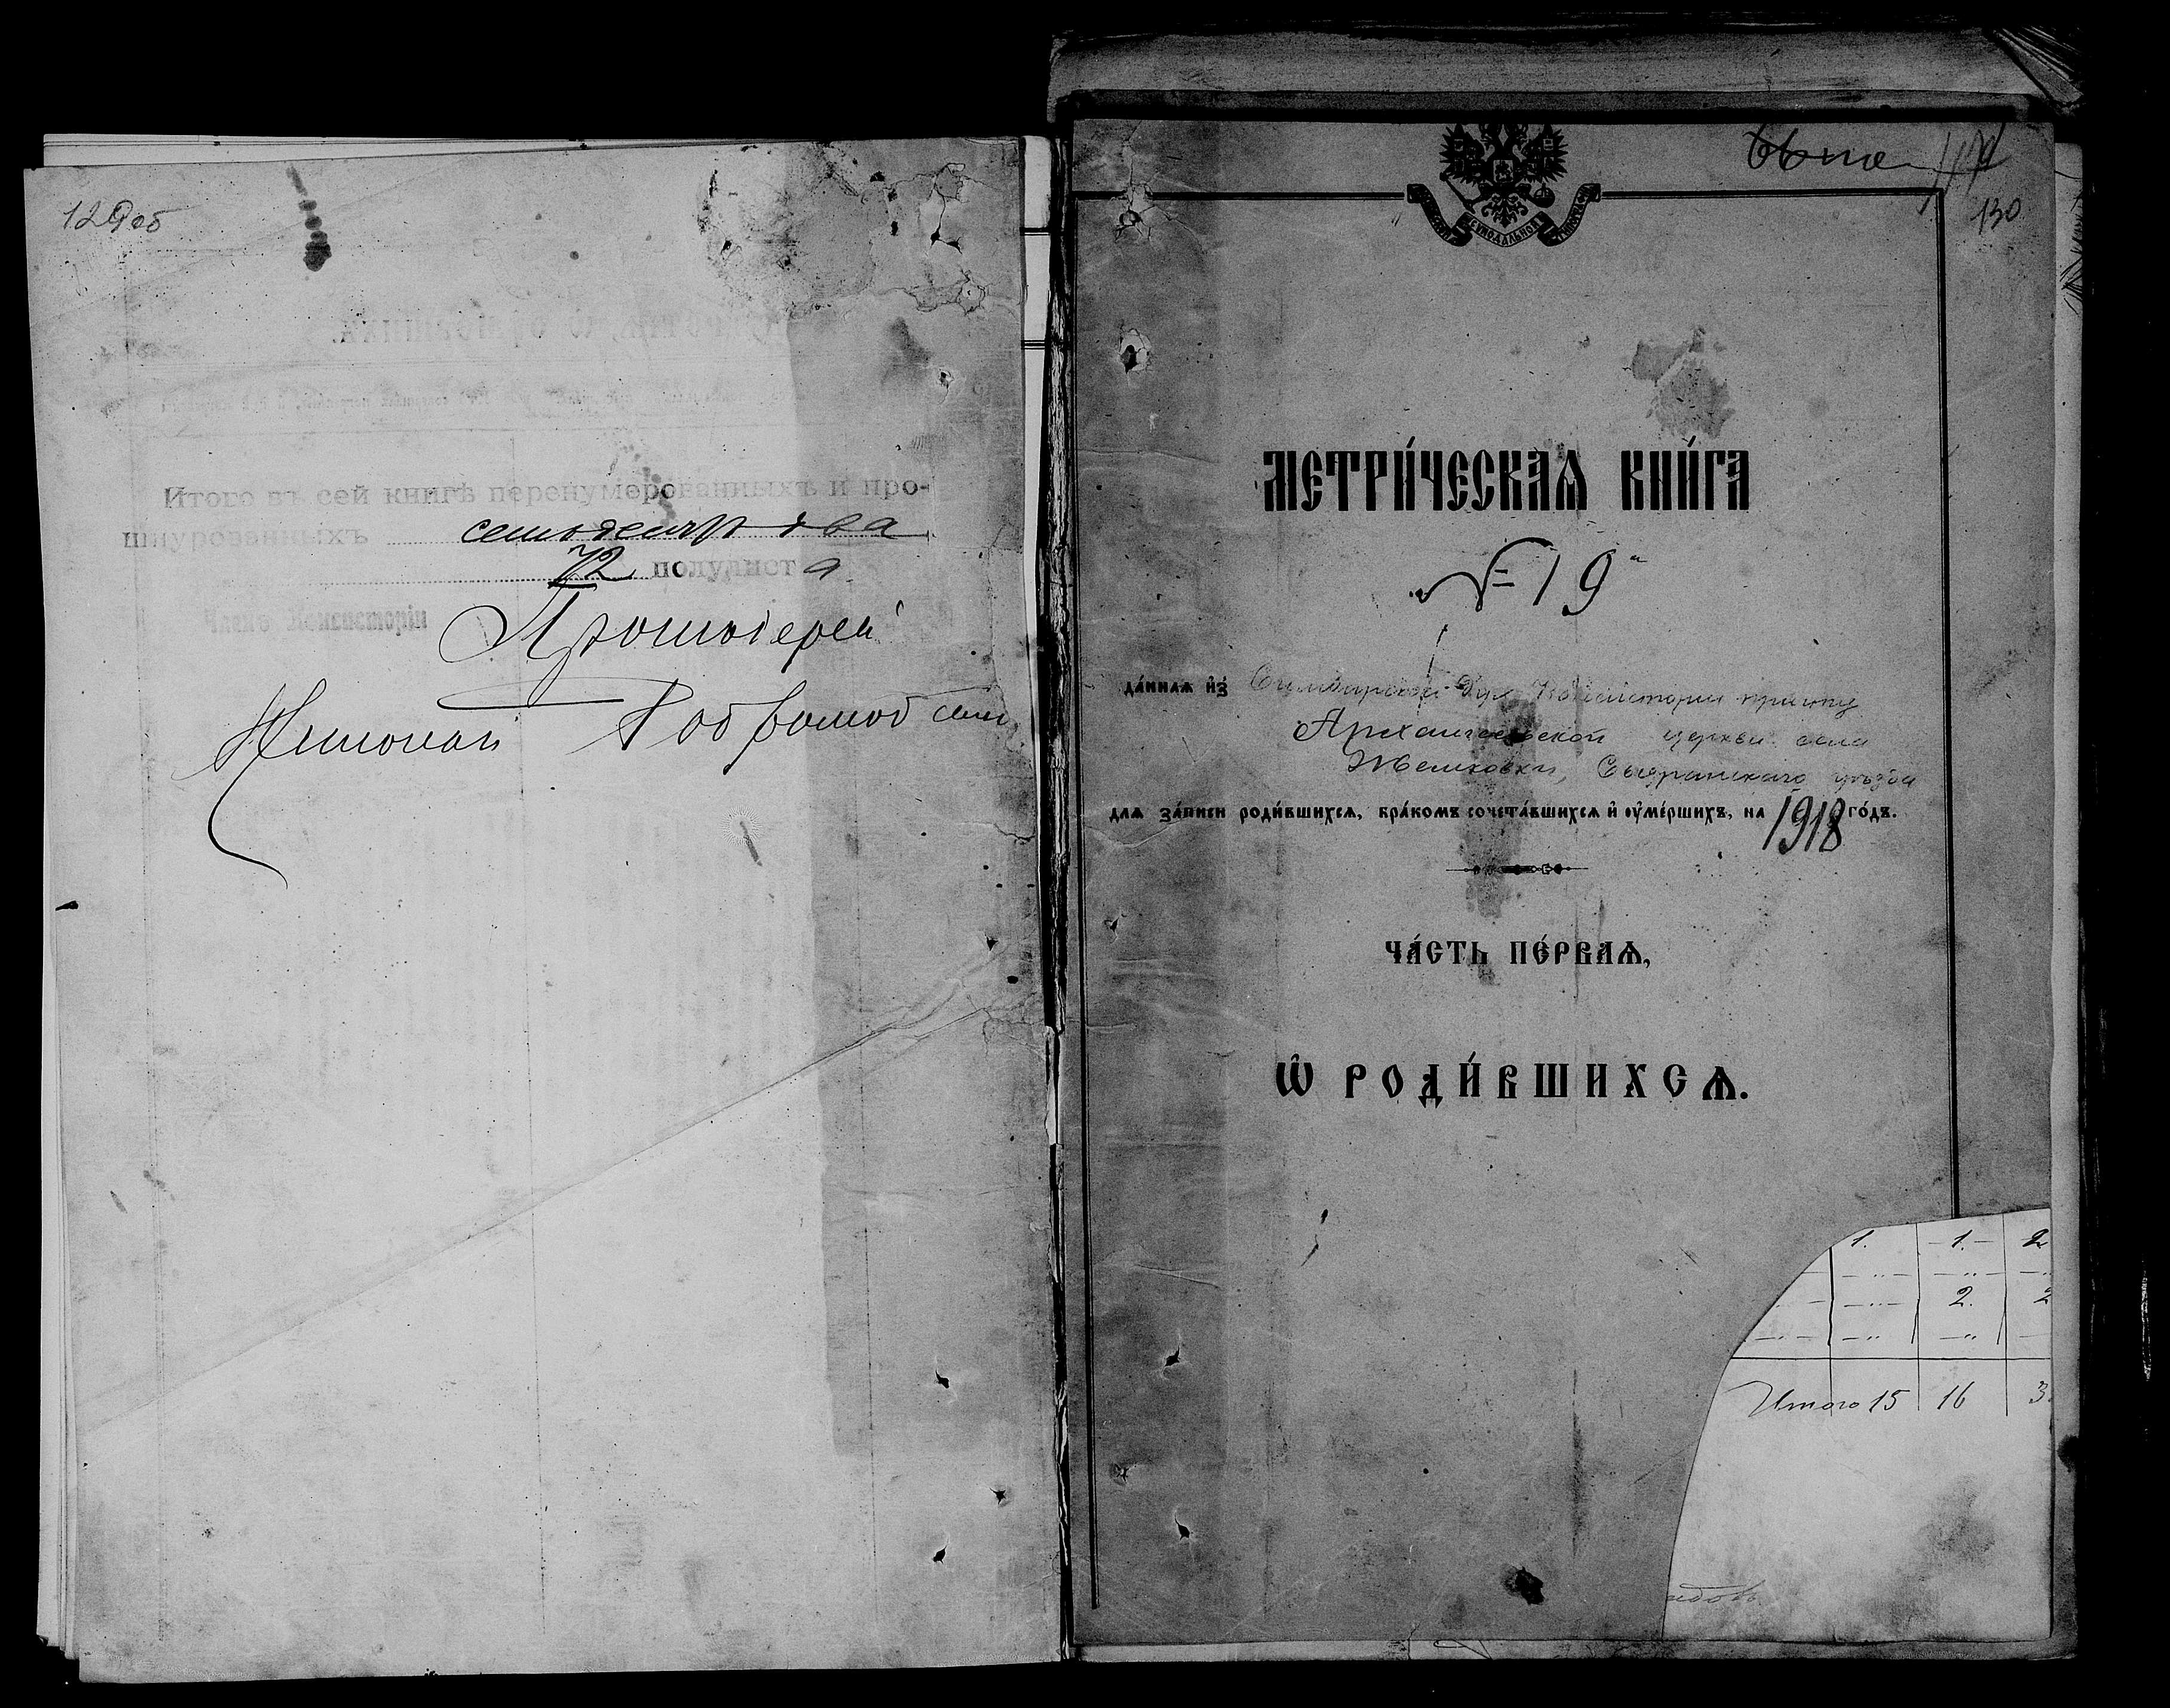 129об
Итого въ сей книгѣ перенумерованныхъ и про-
шнурованныхъ семьдесятъ два
72 полулиста
Членъ Консисторіи
Протоіерей
Николай
130
СѴНОДАЛЬНОЙ
МЕТРИ́ЧЕСКАѦ КНИ́ГА
№ 19
да́ннаѧ и҆з̾ Симбирской Дух. Консисторіи причту
Архангельской церкви села
Жемковки, Сызранскаго уѣзда
длѧ за́писи роди́вшихсѧ, бра́комъ сочета́вшихсѧ и҆ ᲂу҆ме́ршихъ, на 1918 го́дъ.
ЧА́СТЬ ПЕ́РВАѦ,
Ѡ҆ РОДИ́ВШИХСѦ.
1. 1. 2
2. 2
Итого 15 16 3